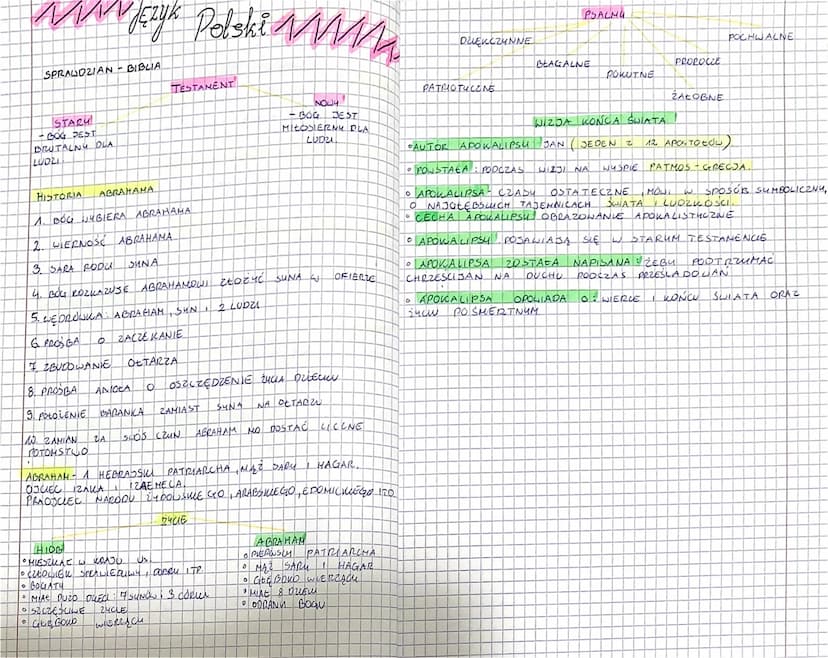 Język Polski
SPRAWDZIAN - BIBLIA
TESTAMENT
STARY
- BÓG JEST
BRUTALNY DLA
LUDZI.
NOWY
- BÓG JEST
MIŁOSIERNY DLA
LUDZI.
HISTORIA ABRAHAMA
1. BÓG WYBIERA ABRAHAMA
2. WIERNOŚĆ ABRAHAMA
3. SARA RODZI SYNA
4. BÓG ROZKAZUJE ABRAHAMOWI ZŁOŻYĆ SYNA W OFIERZE
5. WĘDRÓWKA: ABRAHAM, SYN I 2 LUDZI
6. PROŚBA O ZACZEKANIE
7. ZBUDOWANIE OŁTARZA
8. PROŚBA ANIOŁA O OSZCZĘDZENIE ŻYCIA DZIECKU
9. POŁOŻENIE BARANKA ZAMIAST SYNA NA OŁTARZU
10. ZAMIAN ZA SWÓJ CZYN ABRAHAM MO DOSTAĆ LICZNE
POTOMSTWO
ABRAHAM - 1 HEBRAJSKI PATRIARCHA, MĄŻ SARY I HAGAR.
OJCIEC IZAKA I IZAEMELA.
PRAOJCIEC NARODU ŻYDOWSKIEGO, ARABSKIEGO, EDOMICKIEGO ITD
ŻYCIE
HIOB
• MIESZKAŁ W KRAJU US.
• CZŁOWIEK SPRAWIEDLIWY, DOBRY ITP.
• BOGATY
• MIAŁ DUŻO DZIECI: 7 SYNÓW I 3 CÓRKI
• SZCZĘŚLIWE ŻYCIE
• GŁĘBOKO WIERZĄCY
ABRAHAM
• PIERWSZY PATRIARCHA
• MĄŻ SARY I HAGAR
• GŁĘBOKO WIERZĄCY
• MIAŁ 8 DZIECI
• ODDANY BOGU
PSALMY
DZIĘKCZYNNE
POCHWALNE
BŁAGALNE
PROROCZE
POKUTNE
PATRIOTYCZNE
ŻAŁOBNE
WIZJA KOŃCA ŚWIATA
• AUTOR APOKALIPSY: JAN (JEDEN Z 12 APOSTOŁÓW)
• POWSTAŁA: PODCZAS WIZJI NA WYSPIE PATMOS - GRECJA.
• APOKALIPSA - CZASY OSTATECZNE, MÓWI W SPOSÓB SYMBOLICZNY,
O NAJGŁĘBSZYCH TAJEMNICACH ŚWIATA I LUDZKOŚCI.
• CECHA APOKALIPSY: OBRAZOWANIE APOKALISTYCZNE
• APOKALIPSY: POJAWIAJĄ SIĘ W STARYM TESTAMENCIE
• APOKALIPSA ZOSTAŁA NAPISANA: ŻEBY PODTRZYMAĆ
CHRZEŚCIJAN NA DUCHU PODCZAS PRZEŚLADOWAŃ
• APOKALIPSA OPOWIADA O: WIERZE I KOŃCU ŚWIATA ORAZ
ŻYCIU POŚMIERTNYM